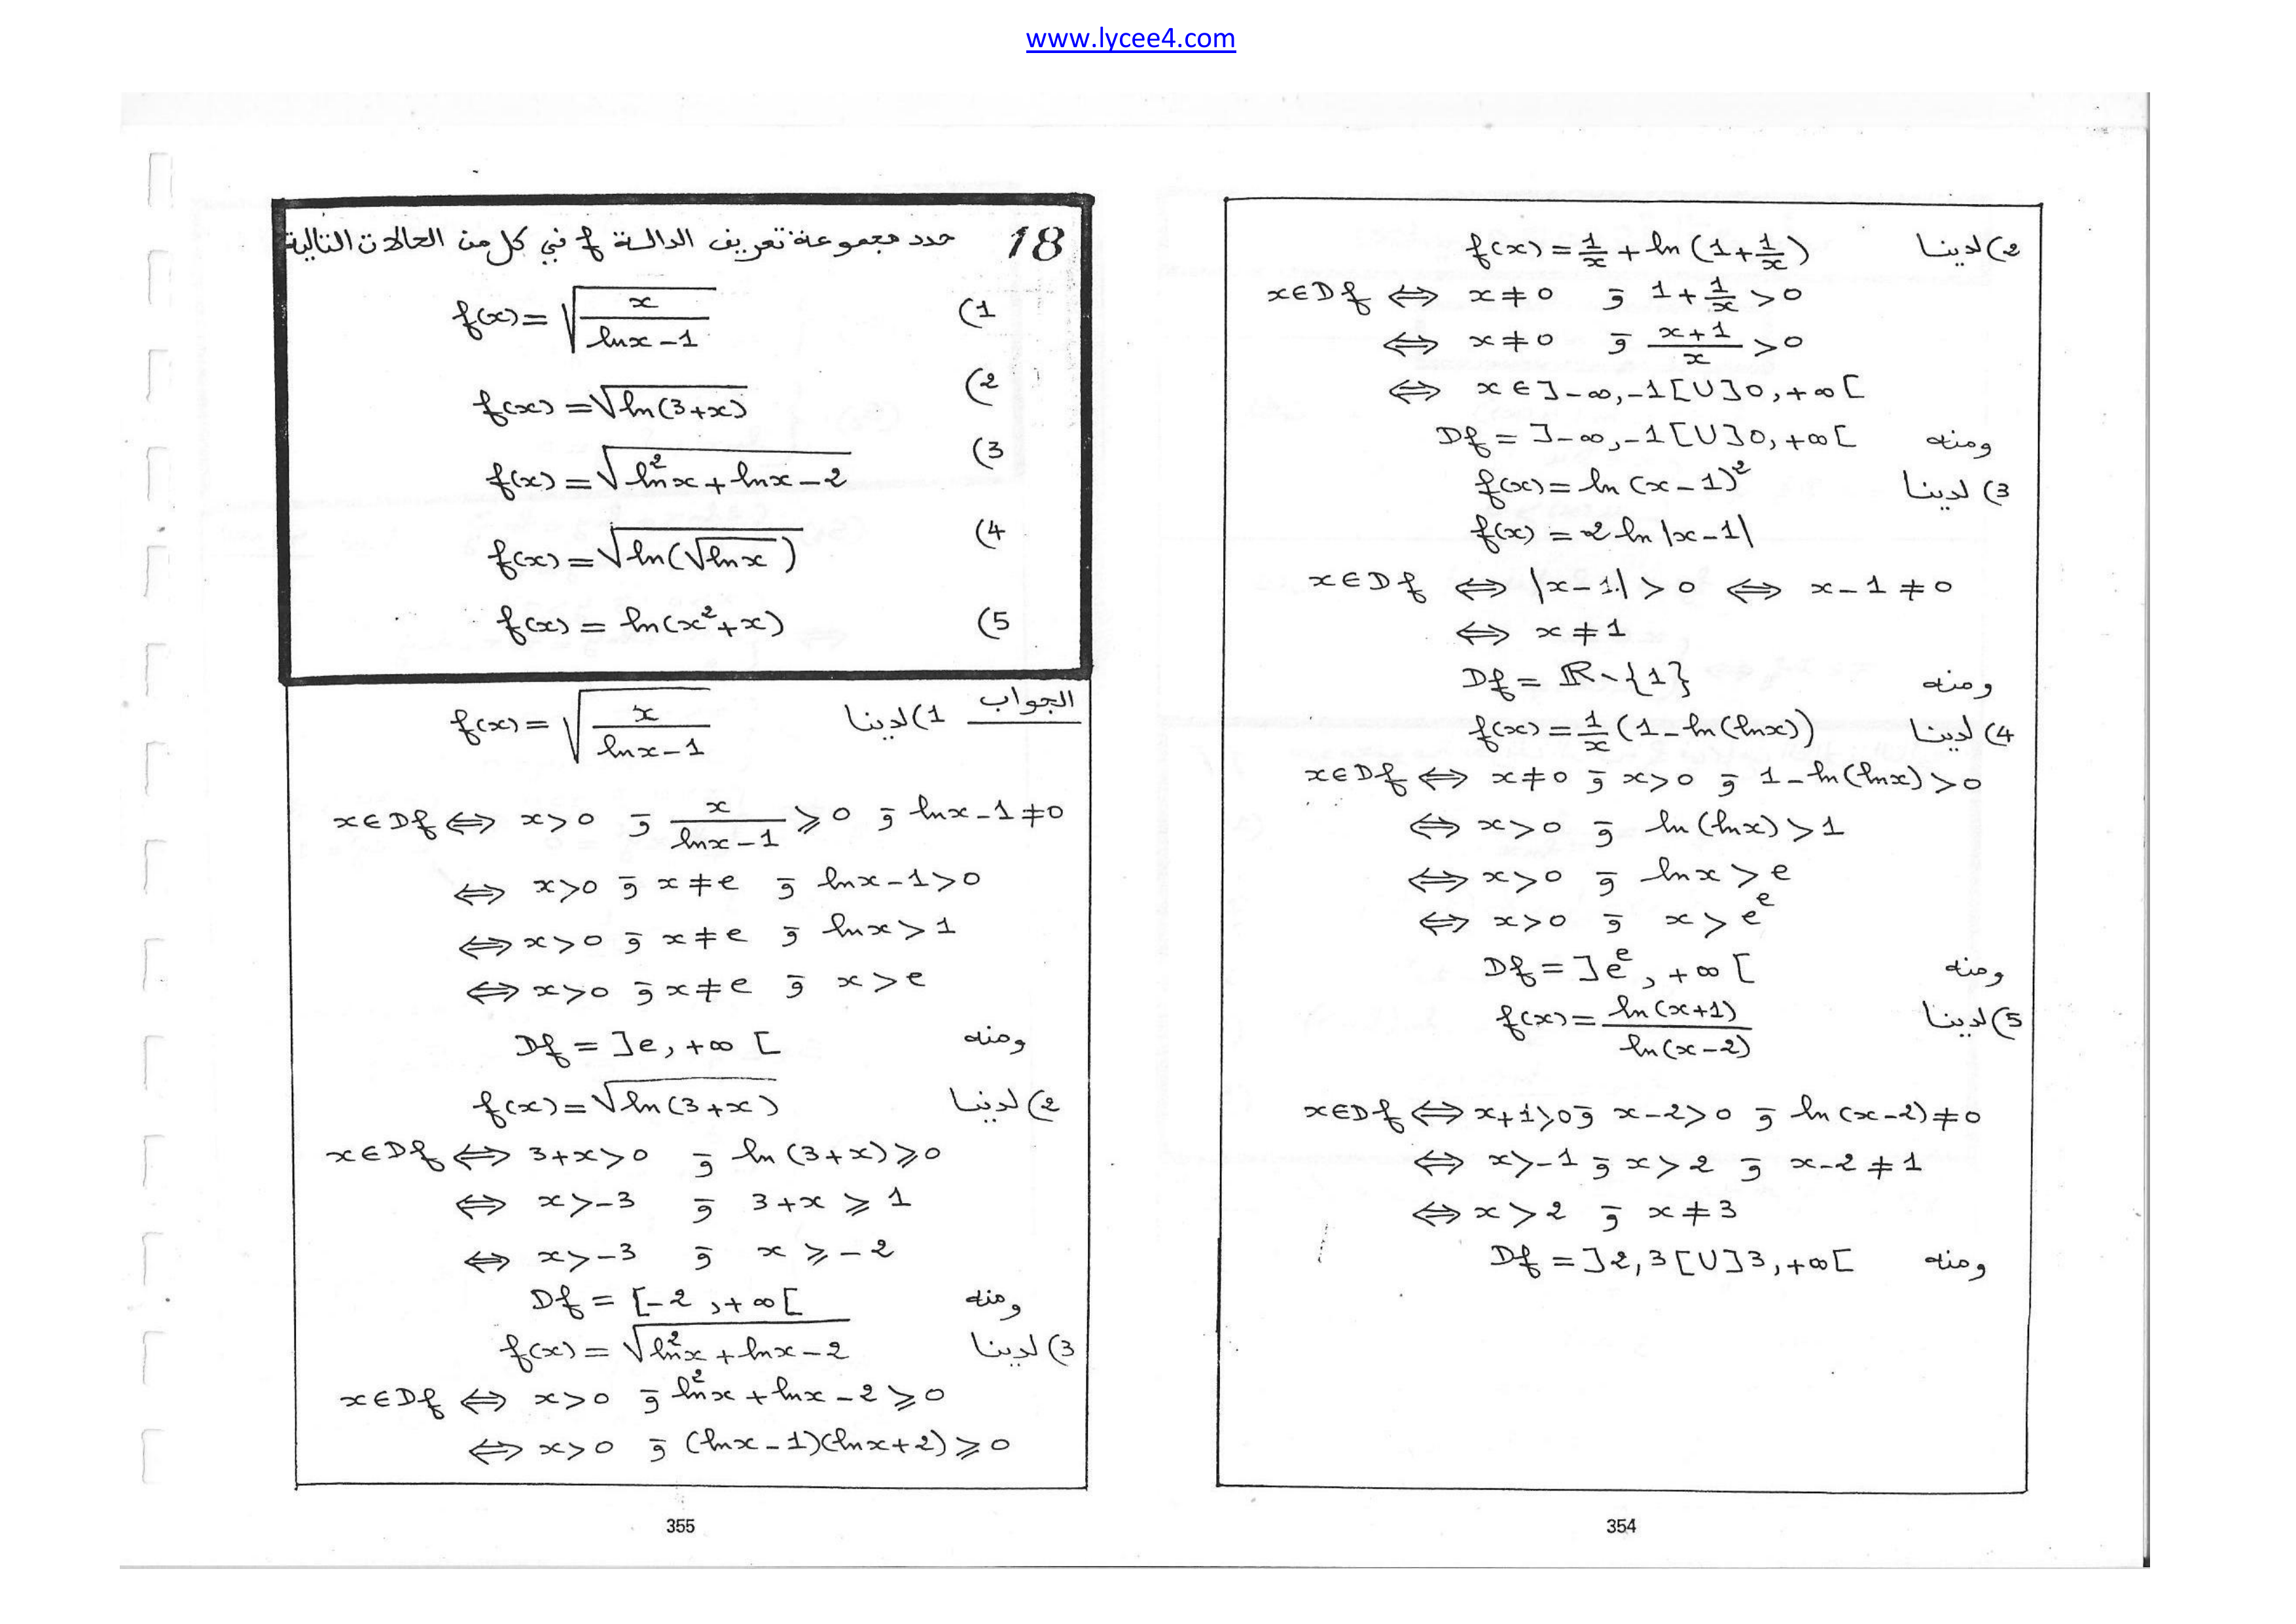 www.lycee4.com
2) لدينا f(x) = 1/x + ln(1 + 1/x)
x∈Df ⟺ x ≠ 0 و 1 + 1/x > 0
⟺ x ≠ 0 و (x+1)/x > 0
⟺ x ∈ ]-∞, -1[ U ]0, +∞[
ومنه Df = ]-∞, -1[ U ]0, +∞[
3) لدينا f(x) = ln(x-1)²
f(x) = 2 ln|x-1|
x∈Df ⟺ |x-1| > 0 ⟺ x-1 ≠ 0
⟺ x ≠ 1
ومنه Df = ℝ \ {1}
4) لدينا f(x) = 1/x (1 - ln(lnx))
x∈Df ⟺ x ≠ 0 و x > 0 و 1 - ln(lnx) > 0
⟺ x > 0 و ln(lnx) > 1
⟺ x > 0 و lnx > e
⟺ x > 0 و x > e^e
ومنه Df = ]e^e, +∞[
5) لدينا f(x) = ln(x+1)/ln(x-2)
x∈Df ⟺ x+1 > 0 و x-2 > 0 و ln(x-2) ≠ 0
⟺ x > -1 و x > 2 و x-2 ≠ 1
⟺ x > 2 و x ≠ 3
ومنه Df = ]2, 3[ U ]3, +∞[
354
18 حدد مجموعة تعريف الدالة f في كل من الحالات التالية
1) f(x) = √(x/(lnx - 1))
2) f(x) = √(ln(3+x))
3) f(x) = √(ln²x + lnx - 2)
4) f(x) = √(ln(√(lnx)))
5) f(x) = ln(x² + x)
الجواب 1) لدينا f(x) = √(x/(lnx - 1))
x∈Df ⟺ x > 0 و x/(lnx - 1) ⩾ 0 و lnx - 1 ≠ 0
⟺ x > 0 و x ≠ e و lnx - 1 > 0
⟺ x > 0 و x ≠ e و lnx > 1
⟺ x > 0 و x ≠ e و x > e
ومنه Df = ]e, +∞[
2) لدينا f(x) = √(ln(3+x))
x∈Df ⟺ 3+x > 0 و ln(3+x) ⩾ 0
⟺ x > -3 و 3+x ⩾ 1
⟺ x > -3 و x ⩾ -2
ومنه Df = [-2, +∞[
3) لدينا f(x) = √(ln²x + lnx - 2)
x∈Df ⟺ x > 0 و ln²x + lnx - 2 ⩾ 0
⟺ x > 0 و (lnx - 1)(lnx + 2) ⩾ 0
355